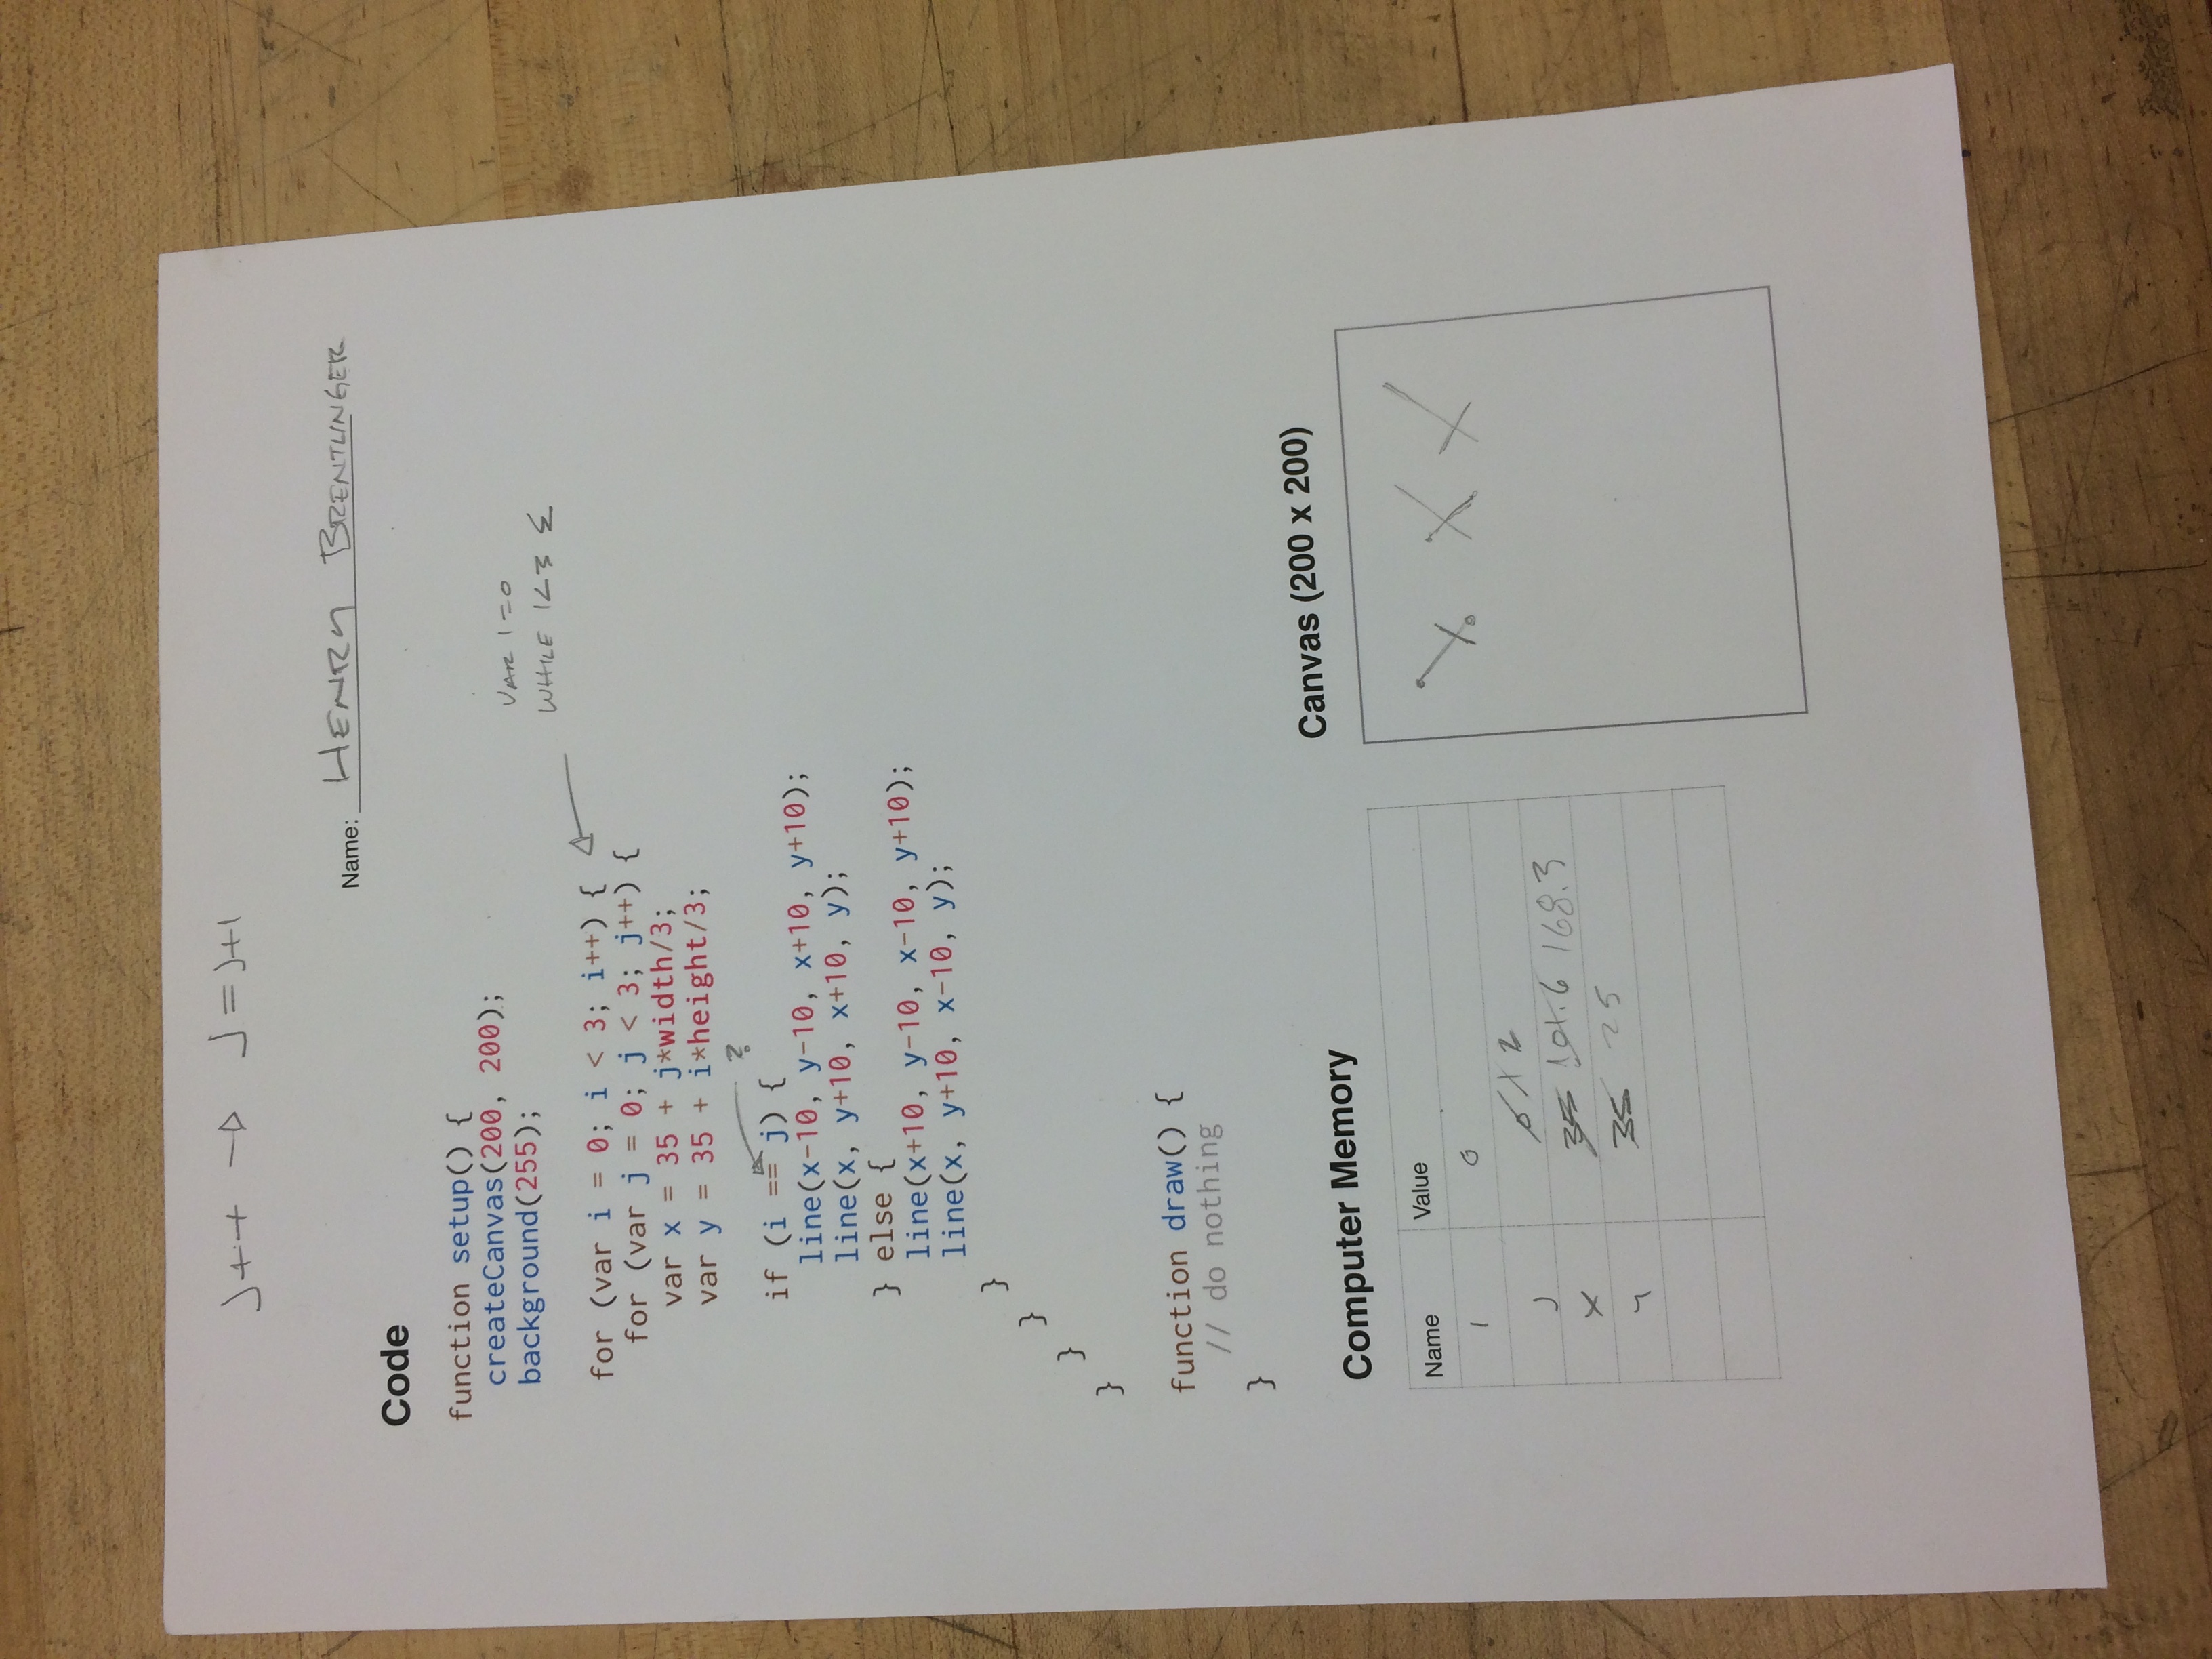 J++ → J = J+1
Name: HENRY BRENTLINGER
Code
function setup() {
createCanvas(200, 200);
background(255);
VAR I=0
WHILE I<3 {
for (var i = 0; i < 3; i++) {
for (var j = 0; j < 3; j++) {
var x = 35 + j*width/3;
var y = 35 + i*height/3;
?
if (i == j) {
line(x-10, y-10, x+10, y+10);
line(x, y+10, x+10, y);
} else {
line(x+10, y-10, x-10, y+10);
line(x, y+10, x-10, y);
}
}
}
}
function draw() {
// do nothing
}
Canvas (200 x 200)
Computer Memory
Name Value
I 0
J 0 1 2
X 35 101.6 168.3
Y 35 25